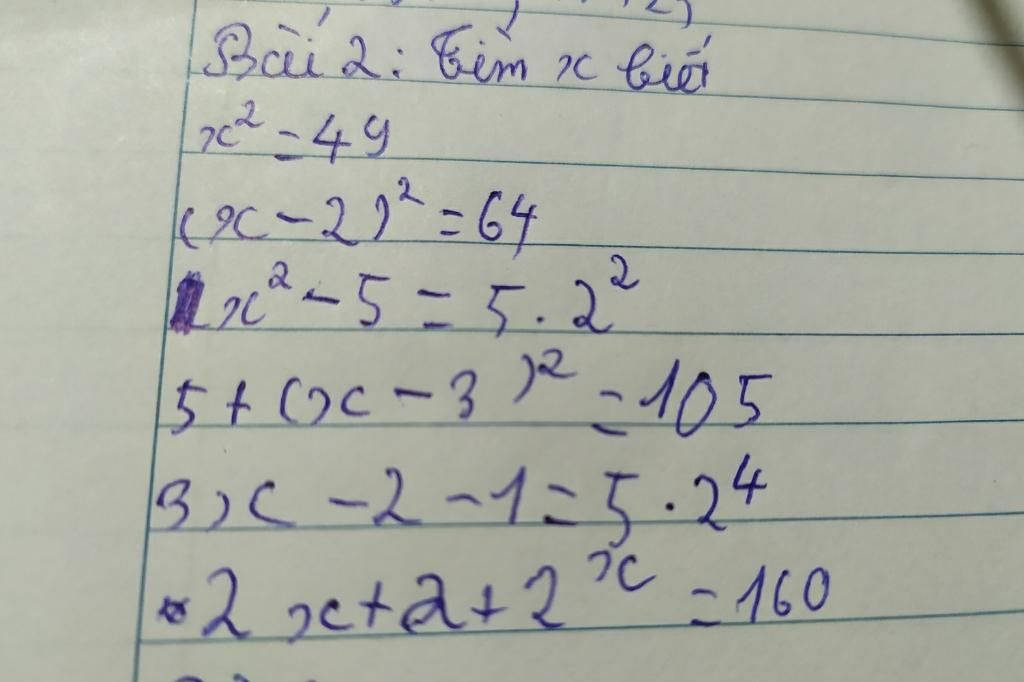 Bài 2: Tìm x biết
x² = 49
(x - 2)² = 64
x² - 5 = 5 . 2²
5 + (x - 3)² = 105
3x - 2 - 1 = 5 . 2⁴
2x + 2 + 2ˣ = 160